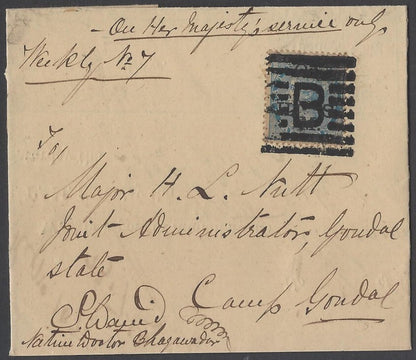 On Her Majesty's service only
Weekly No 7
B
To,
Major H. L. Nutt
Joint Administrator, Gondal
state
Camp Gondal
Native Doctor Bhayavadar